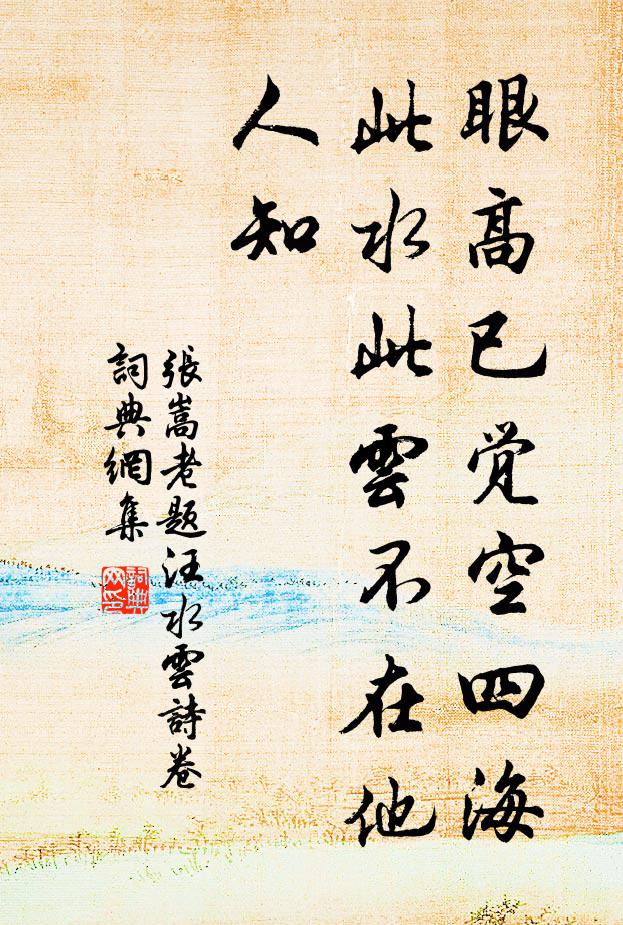 眼高已觉空四海
此水此雲不在他
人知
張嵩老题汪水雲詩卷
詞典網集